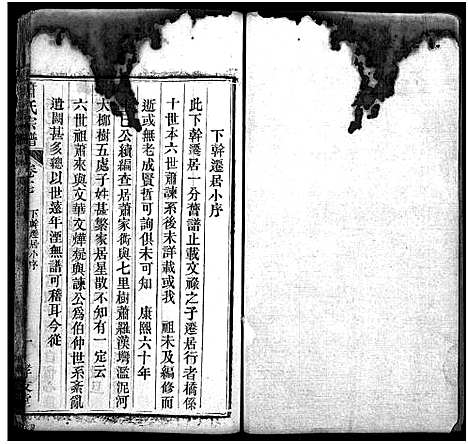 下幹遷居小序
此下幹遷居一分舊譜止載文祿之子遷居行者橘係
十世本六世蕭諫系後未詳載或我　祖未及編修而
逝或無老成賢哲可詢俱未可知　康熙六十年
公續編查居蕭家衖與七里樹蕭羅漢壋濫泥河
大柳樹五處子姓甚繁家居星散不知有一定云
六世祖蕭來與文華文燁凝與諫公爲伯仲世系紊亂
遺闕甚多總以世遠年湮無譜可稽耳今從
氏宗譜
卷之
下幹遷居小序
一